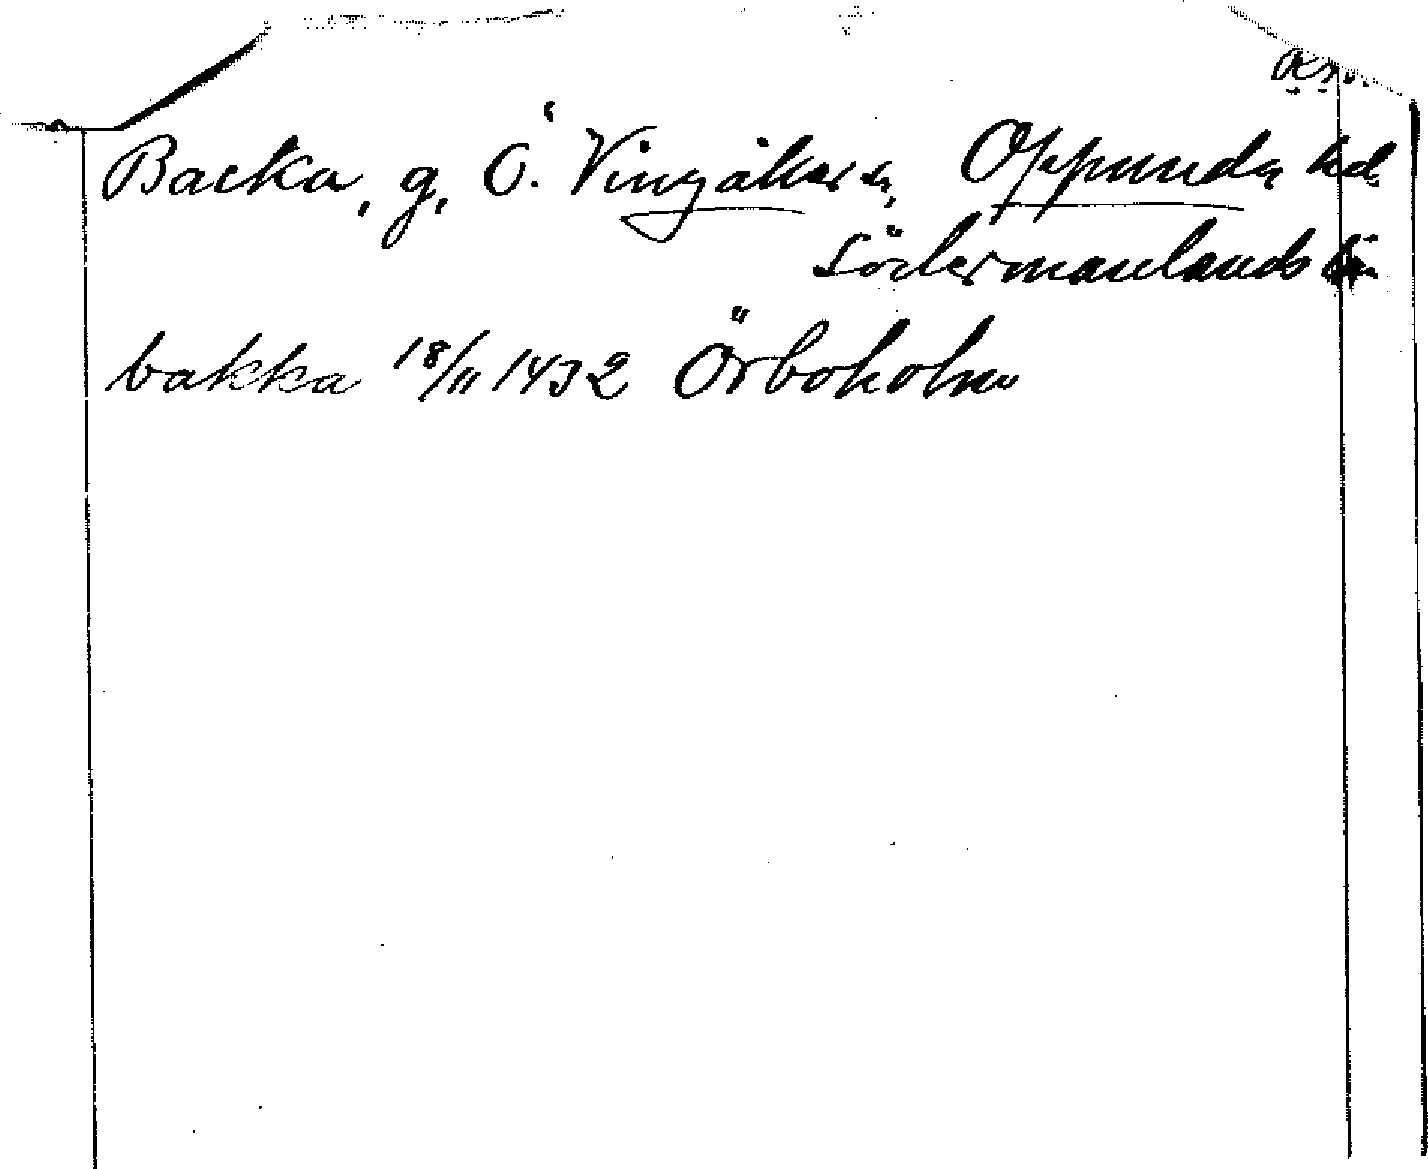 Backa, g, Ö. Vingåkers sn, Oppunda hd.
Södermanlands län
bakka 18/11 1432 Örboholm